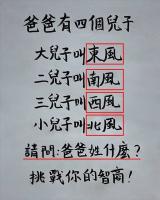 爸爸有四個兒子
大兒子叫東風
二兒子叫南風
三兒子叫西風
小兒子叫北風
請問:爸爸姓什麼?
挑戰你的智商!